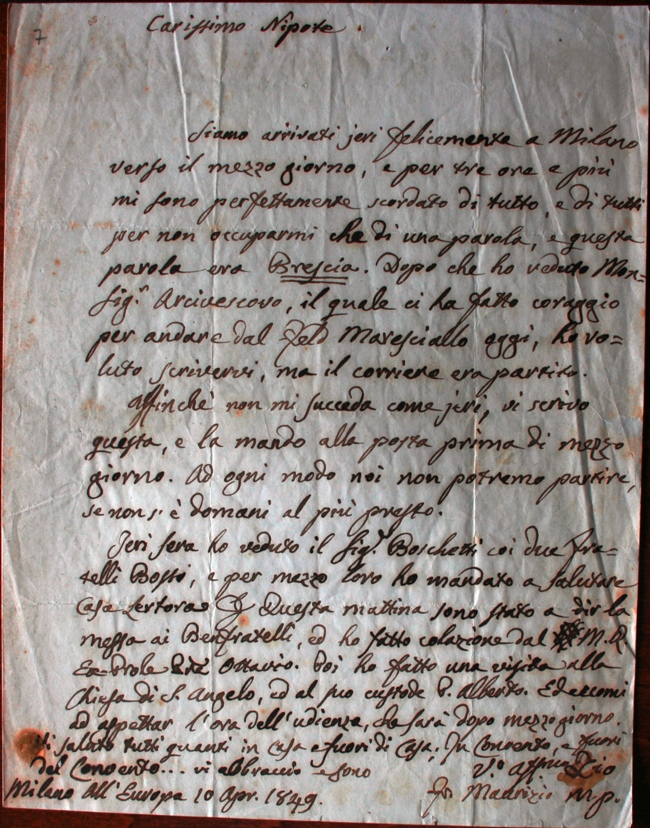 7
Carissimo Nipote.
Siamo arrivati jeri felicemente a Milano
verso il mezzo giorno, e per tre ore e più
mi sono perfettamente scordato di tutto, e di tutti
per non occuparmi che di una parola, e questa
parola era Brescia. Dopo che ho veduto Mon=
sig.r Arcivescovo, il quale ci ha fatto coraggio
per andare dal Feld Maresciallo oggi, ho vo=
luto scrivervi, ma il corriere era partito.
Affinchè non mi succeda come jeri, vi scrivo
questa, e la mando alla posta prima di mezzo
giorno. Ad ogni modo noi non potremo partire,
se non s'è domani al più presto.
Jeri sera ho veduto il Sig.r Boschetti coi due fra=
telli Bosisi, e per mezzo loro ho mandato a salutare
Casa Questa mattina sono stato a dir la
messa ai Benfratelli, ed ho fatto colazione dal M.R
Ottavio. Poi ho fatto una visita alla
Chiesa di S. Angelo, ed al suo custode P. Alberto. Ed eccomi
ad aspettar l'ora dell'udienza, che sarà dopo mezzogiorno.
Vi saluto tutti quanti in Casa e fuori di Casa, In Convento, e fuori
del Convento... vi abbraccio e sono V.o Zio
Milano All'Europa 10 Apr. 1849. Fr Maurizio mp.